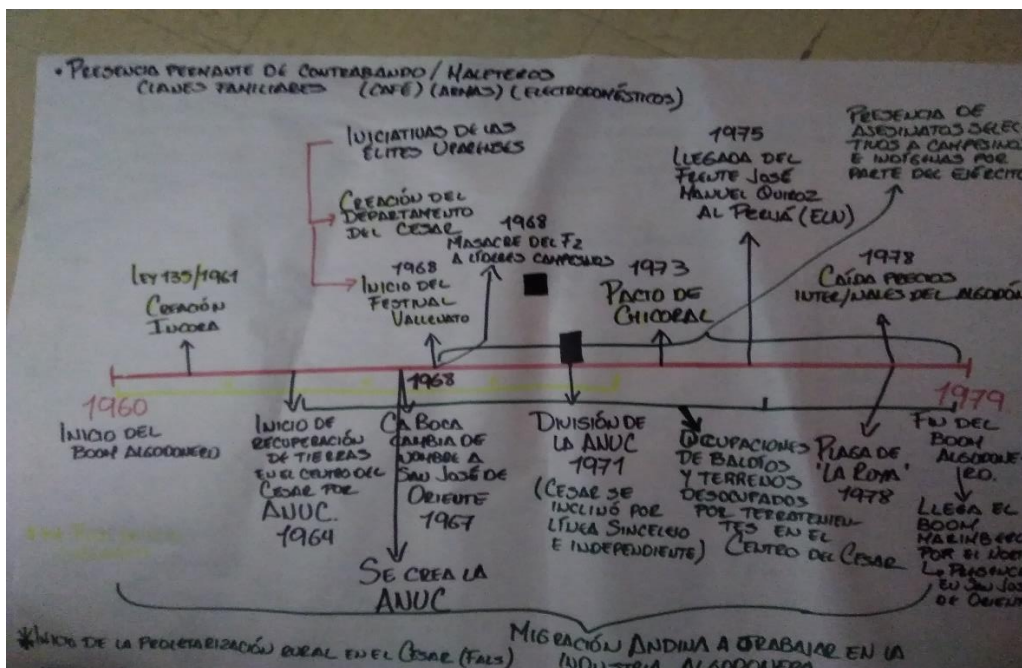 • PRESENCIA PERMANTE DE CONTRABANDO / MALETEROS
CLANES FAMILIARES (CAFÉ) (ARMAS) (ELECTRODOMÉSTICOS)
INICIATIVAS DE LAS
ÉLITES UPARENSES
CREACIÓN DEL
DEPARTAMENTO
DEL CESAR
1968
INICIO DEL
FESTIVAL
VALLENATO
LEY 135/1961
CREACIÓN
INCORA
1968
MASACRE DEL F2
A LÍDERES CAMPESINOS
1973
PACTO DE
CHICORAL
1975
LLEGADA DEL
FRENTE JOSÉ
MANUEL QUIROZ
AL PERIJÁ (ELN)
PRESENCIA DE
ASESINATOS SELEC
TIVOS A CAMPESINOS
E INDÍGENAS POR
PARTE DEL EJÉRCITO
1978
CAÍDA PRECIOS
INTER/NALES DEL ALGODÓN
1960
INICIO DEL
BOOM ALGODONERO
INICIO DE
RECUPERACIÓN
DE TIERRAS
EN EL CENTRO DEL
CESAR POR
ANUC.
1964
1968
LA BOCA
CAMBIA DE
NOMBRE A
SAN JOSÉ DE
ORIENTE
1967
SE CREA LA
ANUC
DIVISIÓN DE
LA ANUC
1971
(CESAR SE
INCLINÓ POR
LÍNEA SINCELEJO
E INDEPENDIENTE)
OCUPACIONES
DE BALDÍOS
Y TERRENOS
DESOCUPADOS
POR TERRATENIEN
TES EN EL
CENTRO DEL CESAR
PLAGA DE
"LA ROYA"
1978
1979
FIN DEL
BOOM
ALGODONE
RO.
LLEGA EL
BOOM
MARIMBERO
POR EL NORTE
PRESENCIA
EN SAN JOSÉ
DE ORIENTE
*INICIO DE LA PROLETARIZACIÓN RURAL EN EL CESAR (FALS)
MIGRACIÓN ANDINA A TRABAJAR EN LA
INDUSTRIA ALGODONERA